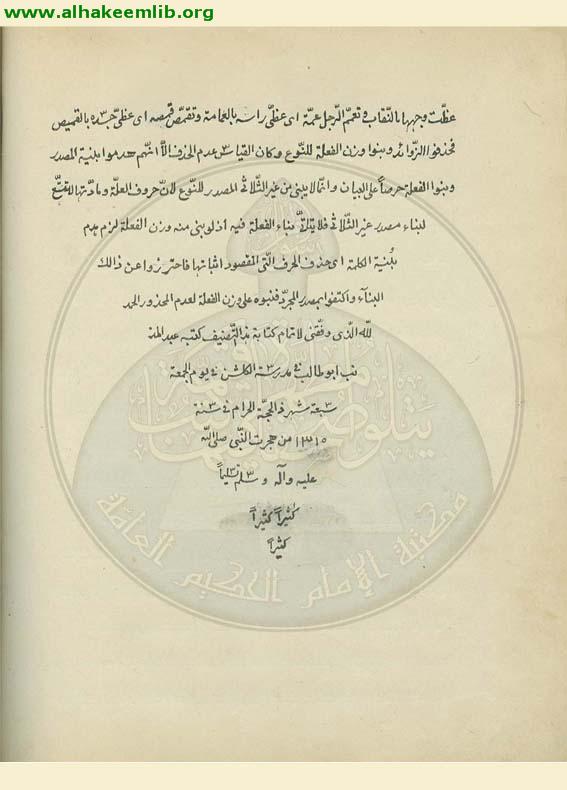 www.alhakeemlib.org
غطّت وجهها بالنّقاب وتعمّم الرّجل عمّة اى غطّى راسه بالعمامة وتقمّص قمصة اى غطّى جسده بالقميص
فحذفوا الزّوائد وبنوا وزن الفعلة للنّوع وكان القياس عدم الحذف الّا انّهم هدموا بنية المصدر
وبنوا الفعلة حرصاً على البيان وانّما لا يبنى من غير الثّلاثى المصدر للنّوع لانّ حروف العلّة ومادّتها لا تمنع
لبناء مصدر غير الثّلاثى فلا يتلائم بناء الفعلة فيه اذ لو بنى منه وزن الفعلة لزم هدم
بُنية الكلمة اى حذف الحرف الّتى المقصود اثباتها فاحترزوا عن ذالك
البنآء واكتفوا بمصدر المجرّد فنبوه على وزن الفعلة لعدم المحذور الحمد
للّه الّذى وفّقنى لاتمام كتابة هذ التّصنيف كتبه عبد المذ
نب ابوطالب فى مدرسة الكلشن فى يوم الجمعة
سبعة شهر ذالحجّة الحرام فى سنة
١٣١٥ من هجرت النّبى صلى اللّه
عليه وآله وسلّم تسليماً
كثيراً كثيراً
كثيراً
مكتبة الإمام الحكيم العامة